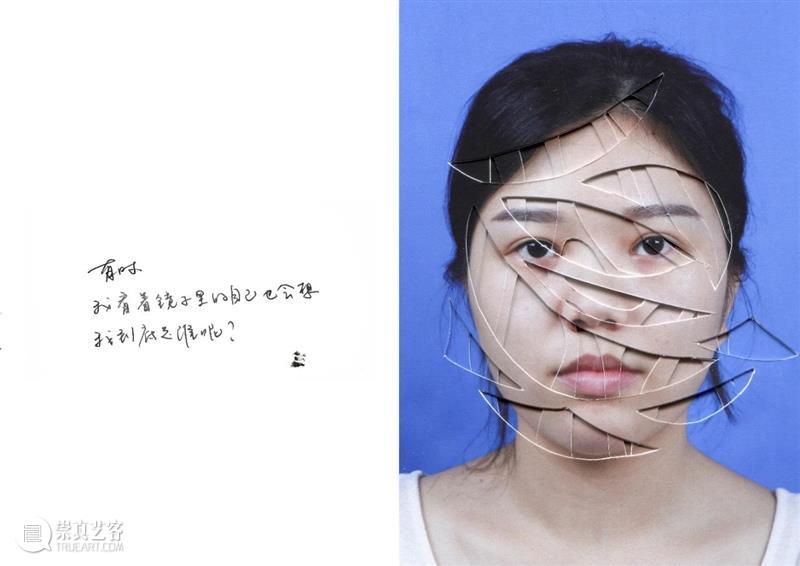 有时
我看着镜子里的自己也会想
我到底是谁呢？
崇真艺客
TRUEART.COM